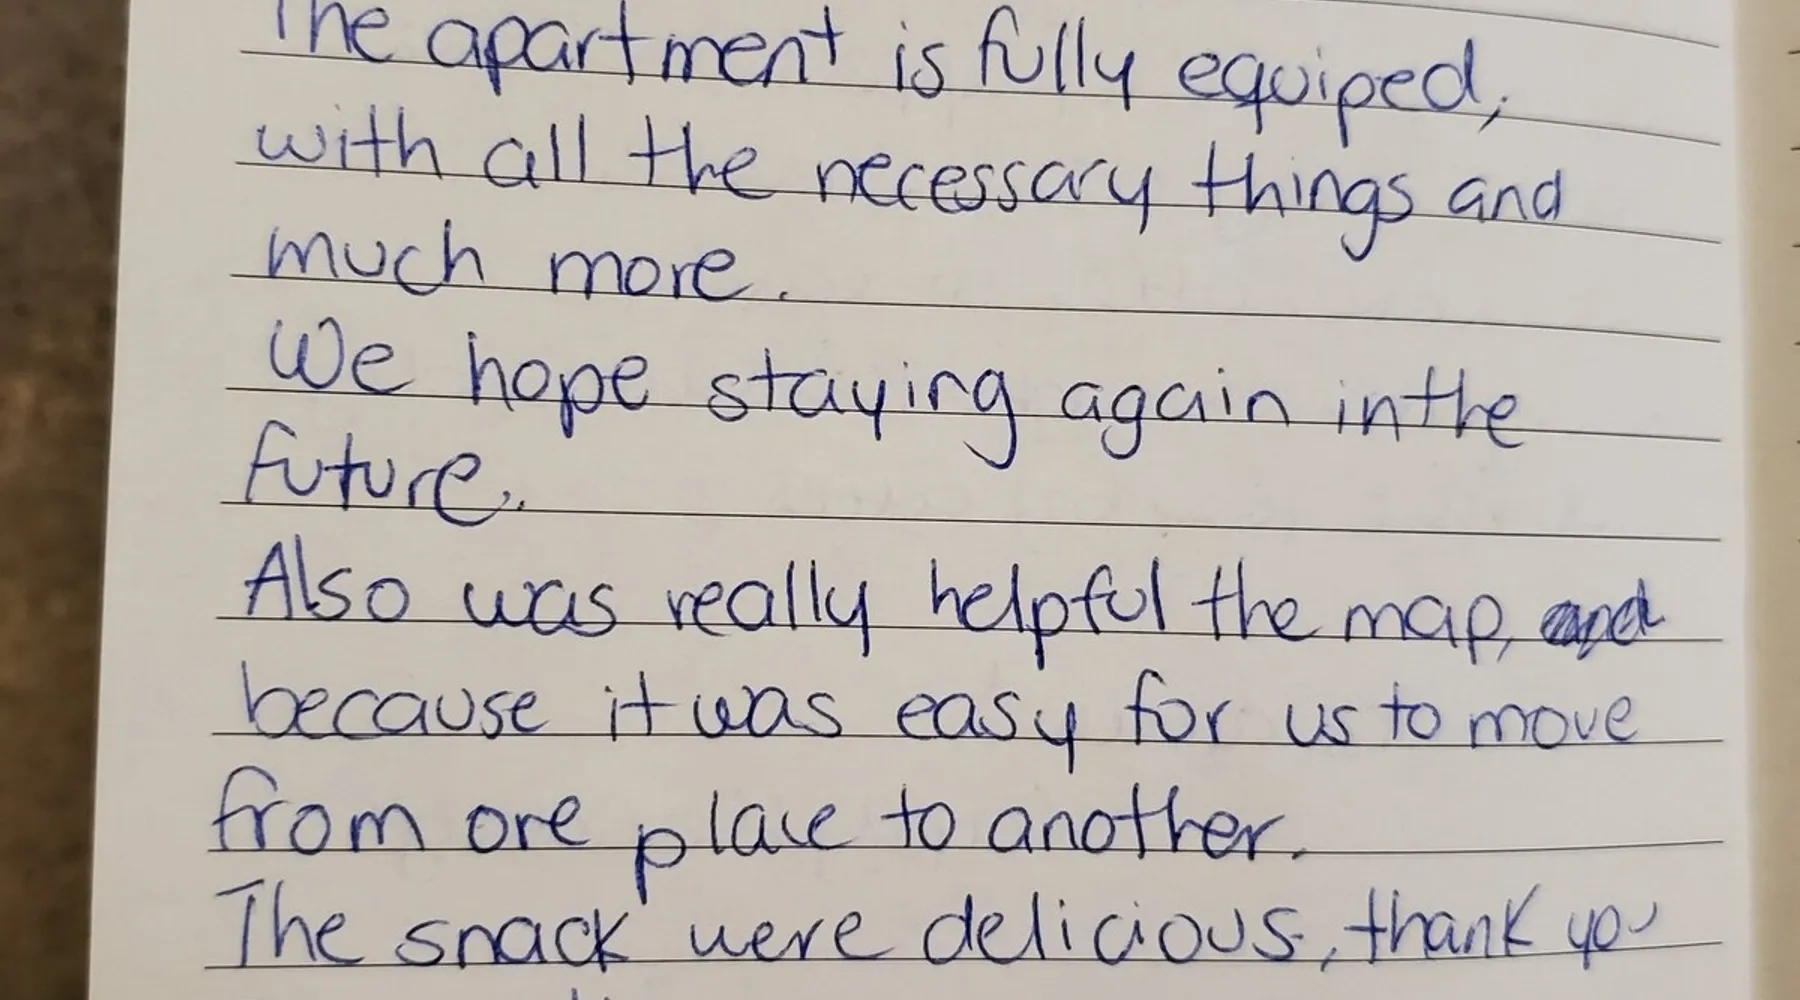 The apartment is fully equiped,
with all the necessary things and
much more.
We hope staying again in the
future.
Also was really helpful the map, and
because it was easy for us to move
from one place to another.
The snack were delicious, thank you